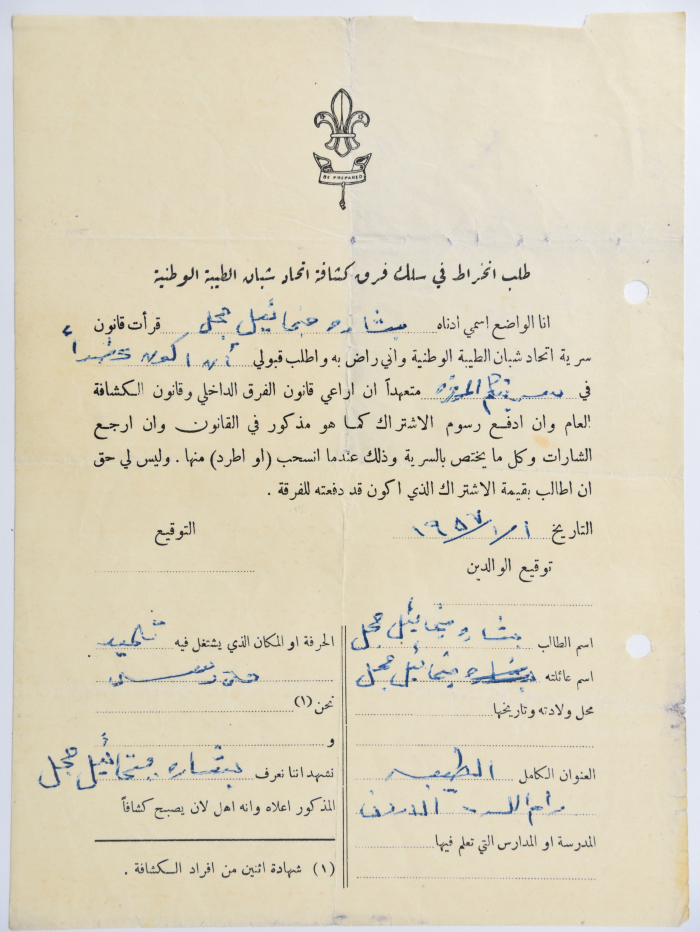 BE PREPARED
طلب انخراط في سلك فرق كشافة اتحاد شبان الطيبة الوطنية
انا الواضع اسمي ادناه بشاره ميخائيل عجل قرأت قانون
سرية اتحاد شبان الطيبة الوطنية واني راض به واطلب قبولي أن اكون عضواً
في سريتكم الموقره متعهداً ان اراعي قانون الفرق الداخلي وقانون الكشافة
العام وان ادفع رسوم الاشتراك كما هو مذكور في القانون وان ارجع
الشارات وكل ما يختص بالسرية وذلك عندما انسحب (او اطرد) منها . وليس لي حق
ان اطالب بقيمة الاشتراك الذي اكون قد دفعته للفرقة .
التاريخ ١/١/١٩٥٧ التوقيع
توقيع الوالدين
اسم الطالب بشاره ميخائيل عجل
اسم عائلته بشاره ميخائيل عجل
محل ولادته وتاريخها
العنوان الكامل الطيبه
رام الله الاردن
المدرسة او المدارس التي تعلم فيها
الحرفة او المكان الذي يشتغل فيه تلميذ
مدرسه
نحن (١)
و
نشهد اننا نعرف بشاره ميخائيل عجل
المذكور اعلاه وانه اهل لان يصبح كشافاً
(١) شهادة اثنين من افراد الكشافة .